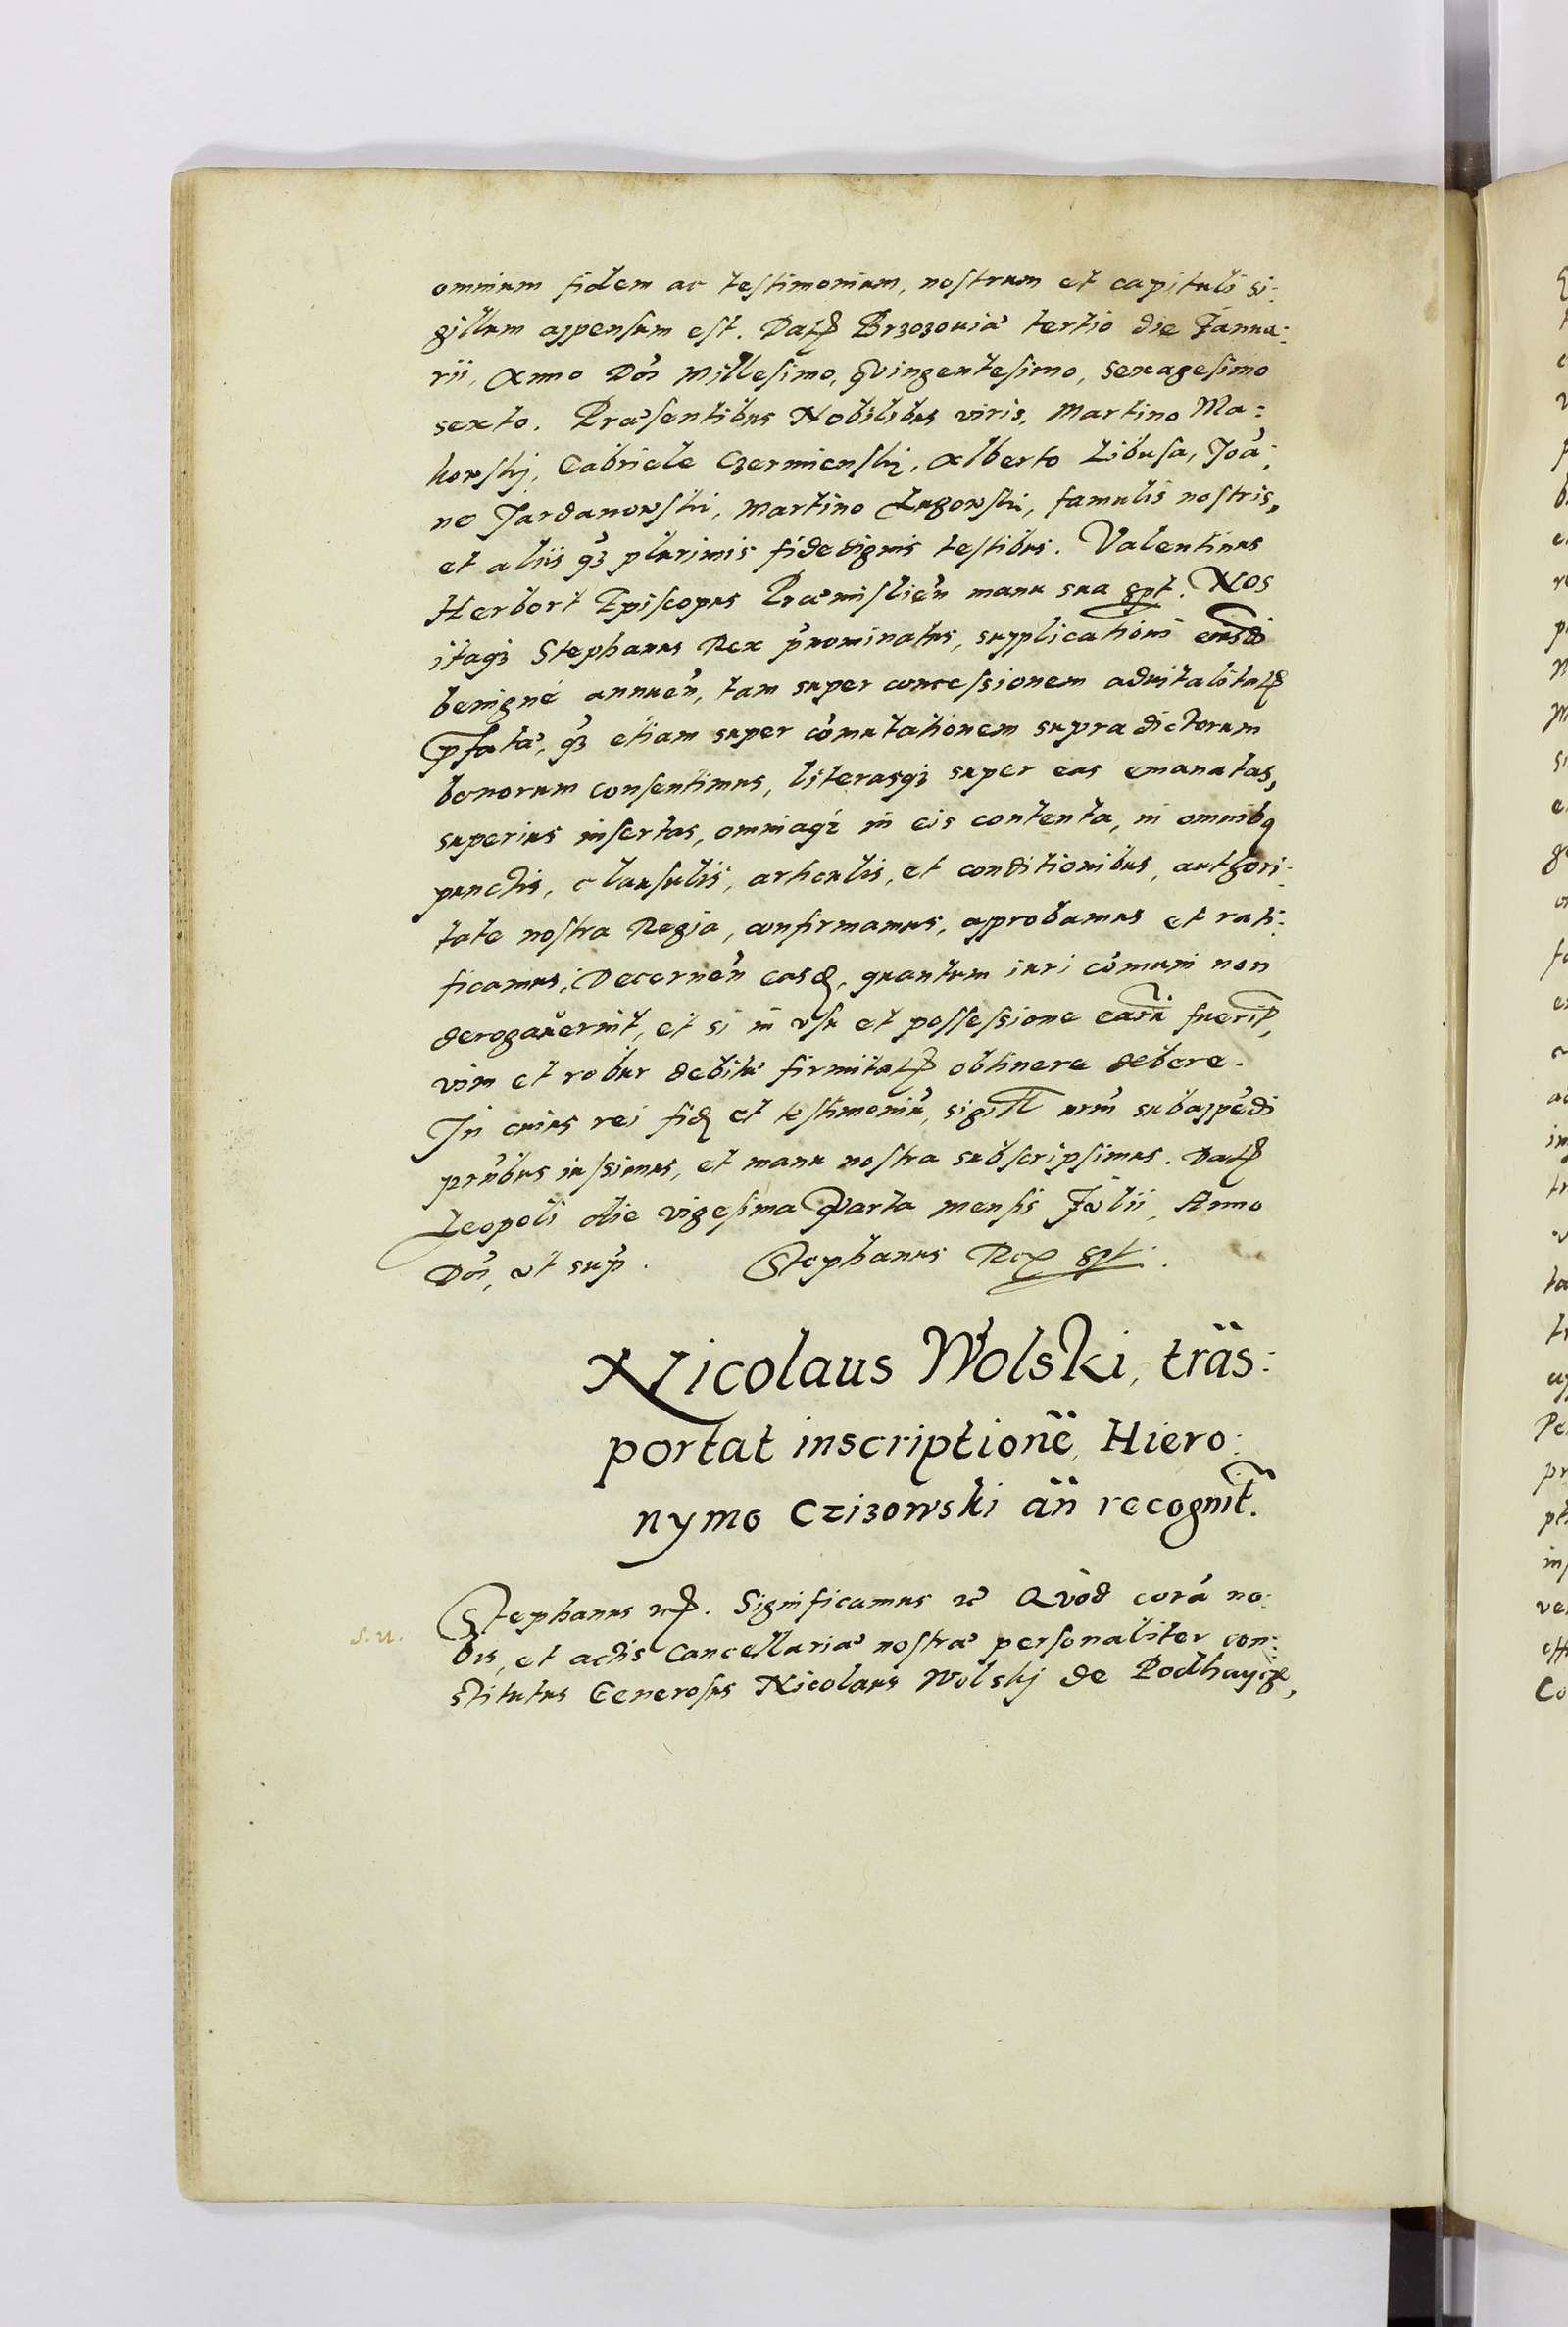 omnium fidem ac testimonium, nostrum et capituli si:
gillum appensum est. Dat Brzozoviæ tertio die Janua:
rii, Anno Doń Millesimo, qvingentesimo, sexagesimo
sexto. Præsentibus Nobilibus viris, Martino Ma:
kowskj, Gabriele Czermienskj, Alberto Libusa, Joã:
ne Jardanowski, Martino Lugowski, famulis nostris,
et aliis qз plurimis fidedignis testibus. Valentinus
Herbort Episcopus Præmislień manu sua sspt. Nos
itaqз Stephanus Rex p̃nominatus, supplicationi eiusd
benignè annueń, tam super concessionem advitalitat
pfatã, qз etiam super cõmutationem supra dictorum
bonorum consentimus, literasqз super eas emanatas,
superius insertas, omniaqз in eis contenta, in omnibq
punctis, clausulis, articulis, et conditionibus, authori:
tate nostra Regia, confirmamus, approbamus et rati:
ficamus; Decerneń easd, quantum iuri cõmuni non
derogaverint, et si in vsu et possessione earũ fuerit,
vim et robur debitæ firmitat obtinere debere.
In cuius rei fid et testimoniũ, sigill nrm̃ subappẽdi
prñbus iussimus, et manu nostra subscripsimus. Dat
Leopoli die vigesima qvarta mensis Jvlii, Anno
Doń, vt sup̃. Stephanus Rex sspt.
Nicolaus Wolski, trãs:
portat inscriptionẽ, Hiero:
nymo Czizowski añ recognit.
Stephanus etc. Significamus etc Qvod corã no:
bis, et actis Cancellariæ nostræ personaliter con:
stitutus Generosus Nicolaus Wolskj de Podhaycze,
S. U.